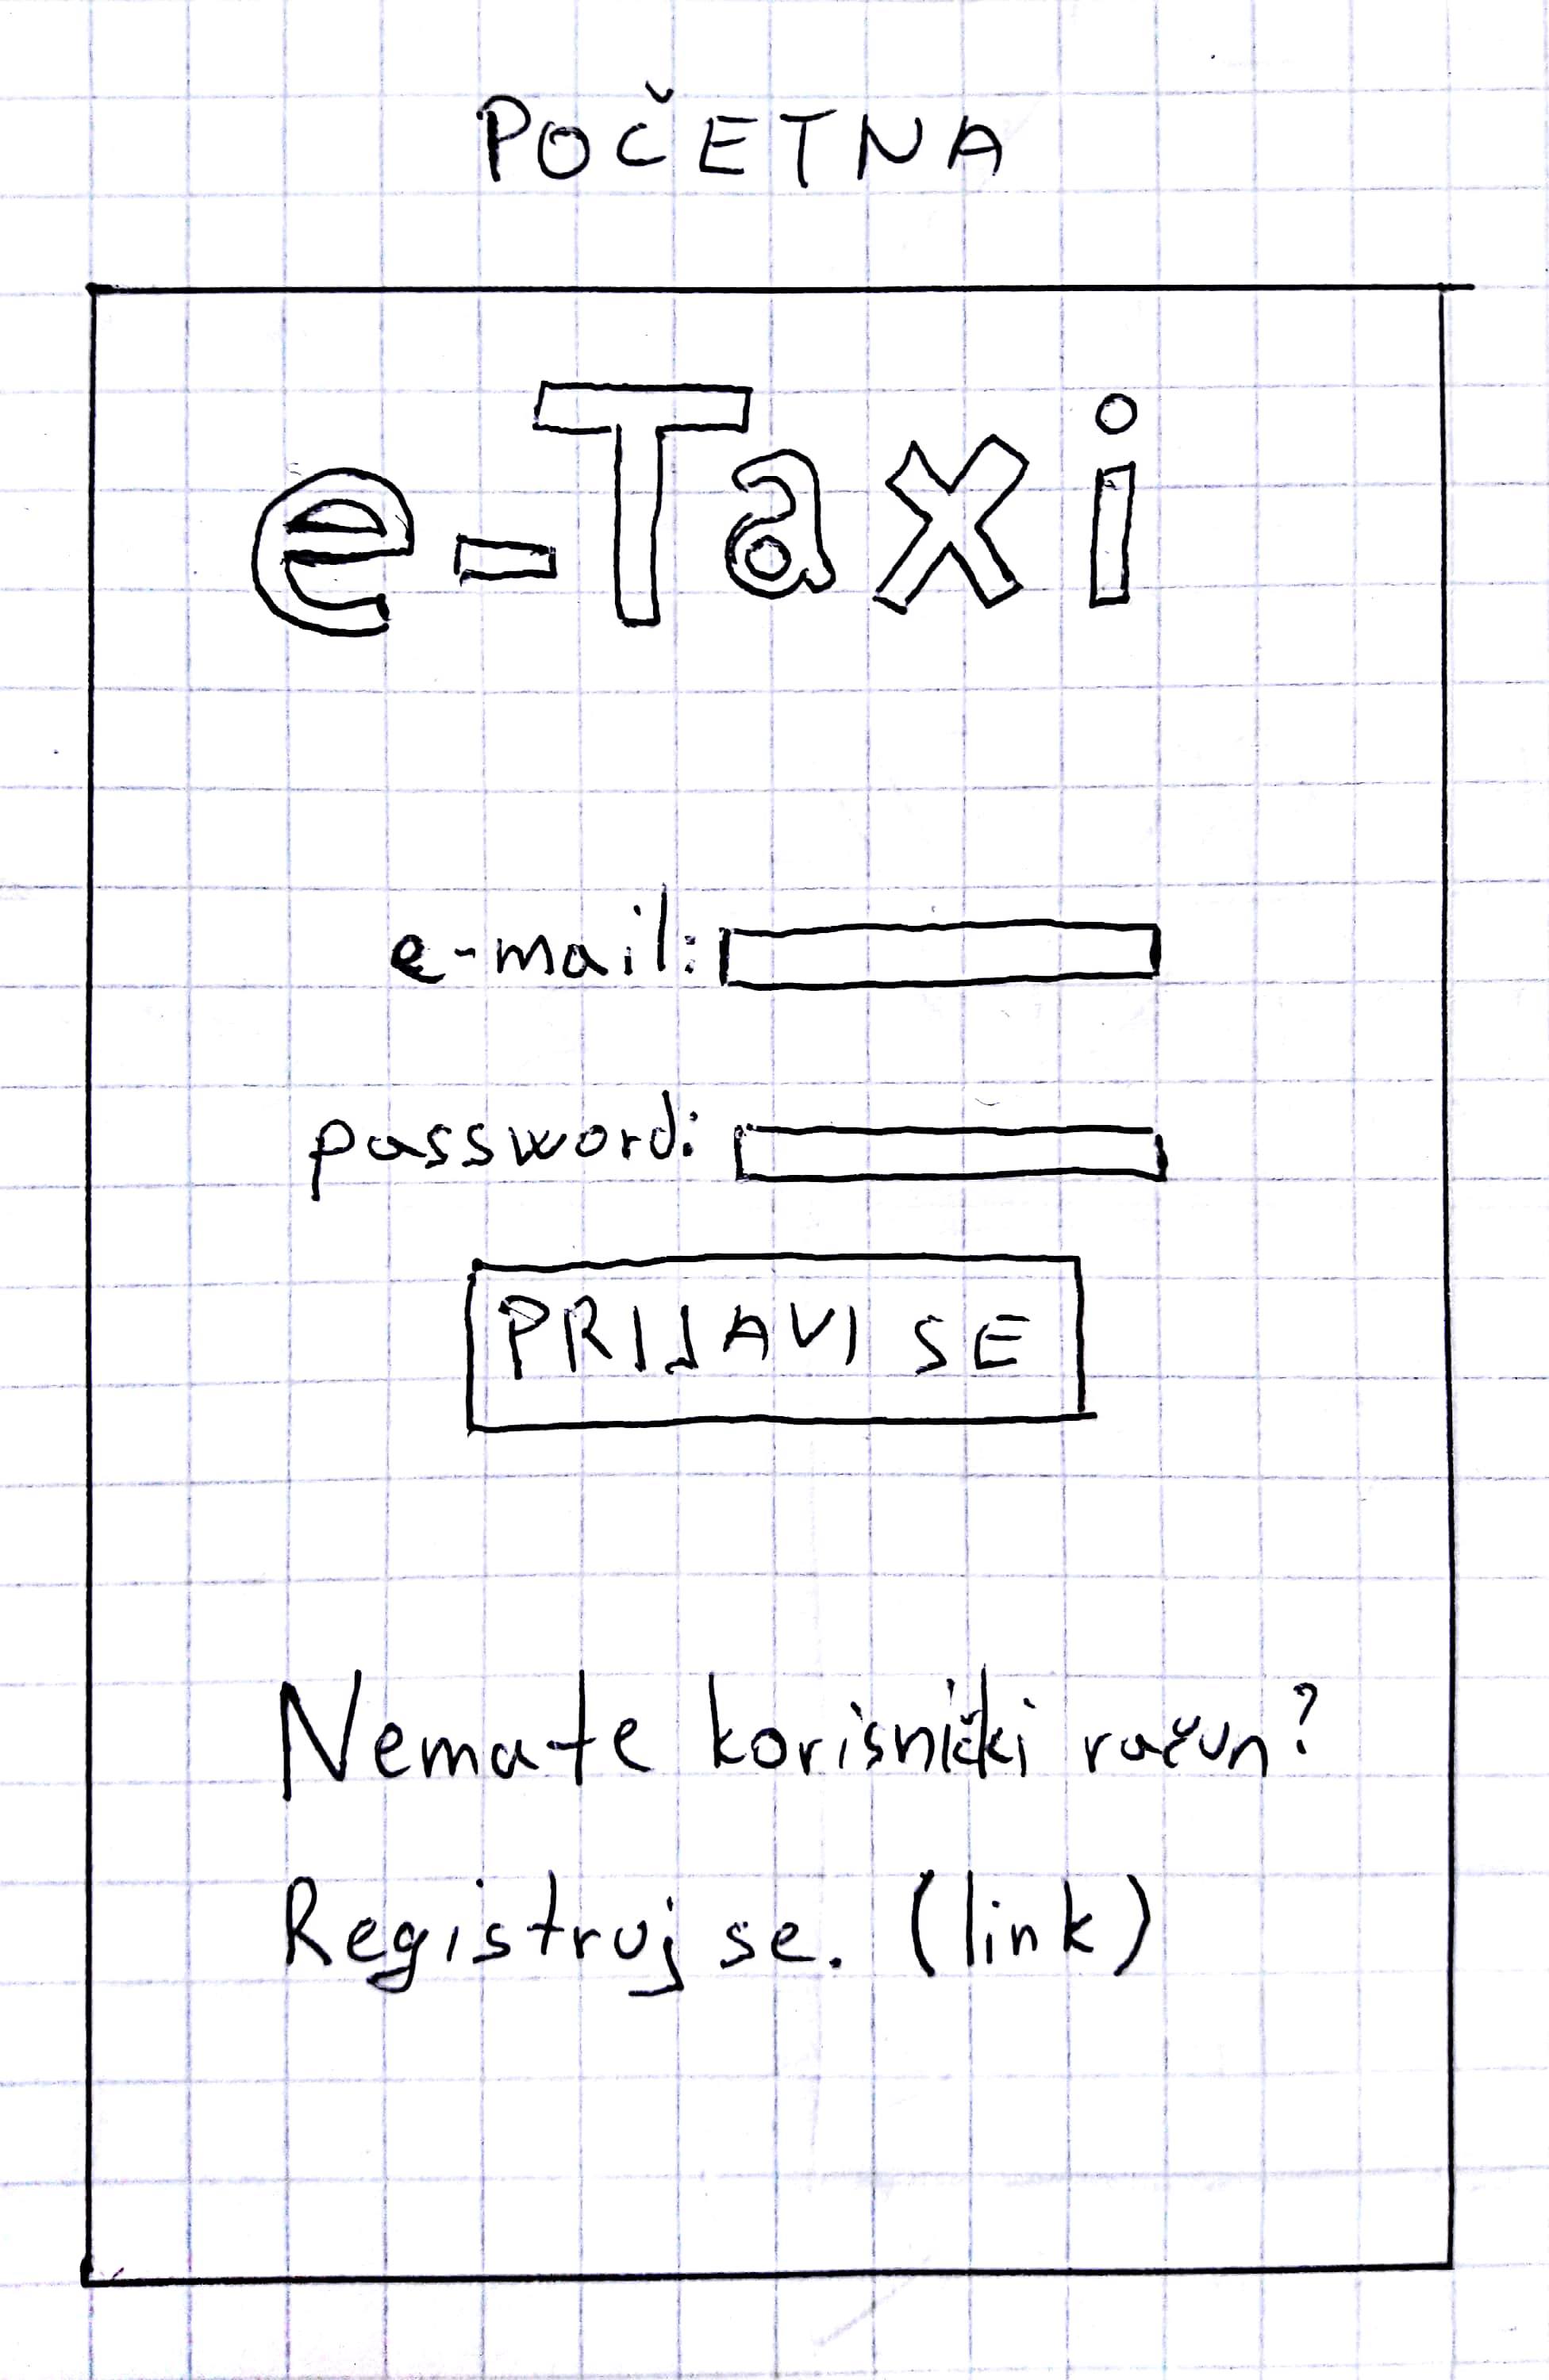 POČETNA
e-Taxi
e-mail:
password:
PRIJAVI SE
Nemate korisnički račun?
Registruj se. (link)